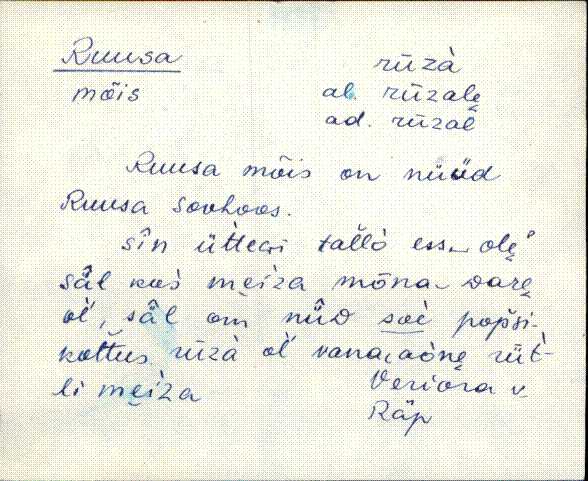 Ruusa
rūzà
mõis
al. rūzalę
ad. rūzal
Ruusa mõis on nüüd
Ruusa Sovhoos.
sîn ütteģi tallò ess olę
sâl kus męiza mõna dare
ol', sâl om nûD soè popsi-
kottus rūzà ol' vana rüt-
li męiza
Veriora v
Räp